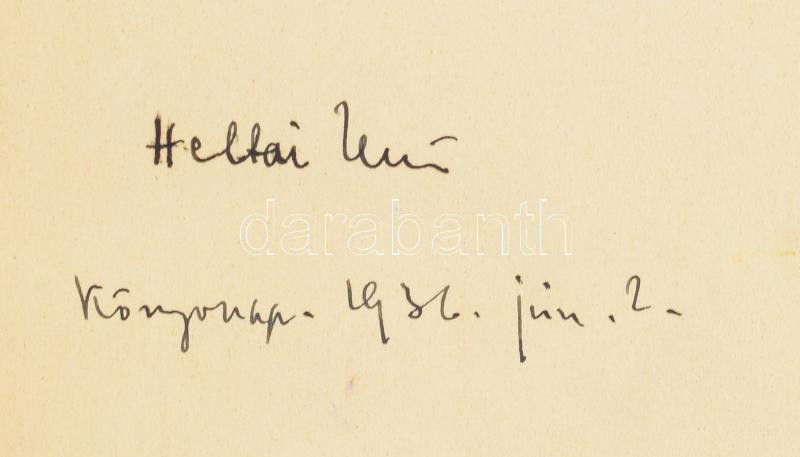 Heltai Jenő
darabanth
Könyvnap. 1936. jún. 2.